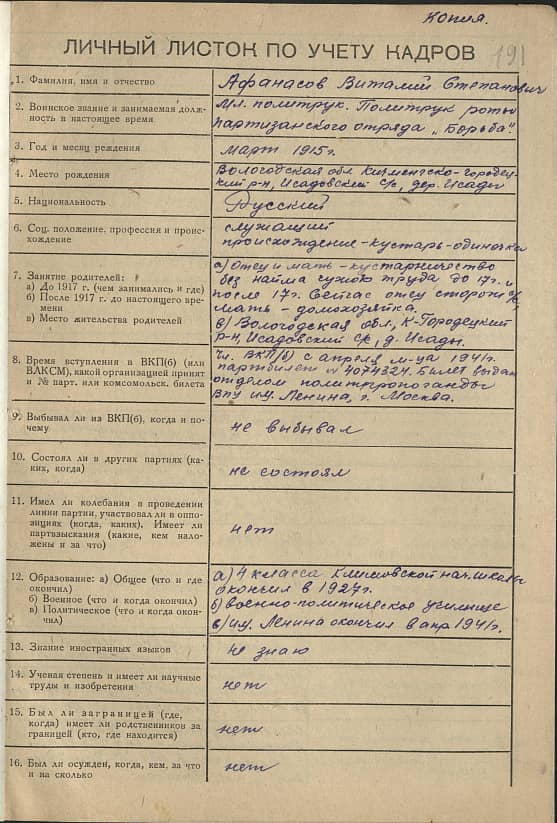 Копия.
ЛИЧНЫЙ ЛИСТОК ПО УЧЕТУ КАДРОВ
191
1. Фамилия, имя и отчество
Афанасов Виталий Степанович
2. Воинское звание и занимаемая долж-
ность в настоящее время
Мл. политрук. Политрук роты
партизанского отряда „Борьба".
3. Год и месяц рождения
Март 1915 г.
4. Место рождения
Вологодская обл Кичменгско-Городец-
кий р-н, Исадовский С/с, дер. Исады
5. Национальность
Русский
6. Соц. положение, профессия и проис-
хождение
служащий
происхождение-кустарь-одиночка
7. Занятие родителей:
а) До 1917 г. (чем занимались и где)
б) После 1917 г. до настоящего вре-
мени
в) Место жительства родителей
а) Отец и мать-кустарничество
без найма чужого труда до 17 г. и
после 17 г. Сейчас отец сторож
мать - домохозяйка.
в) Вологодская обл, К-Городецкий
р-н, Исадовский С/с, д. Исады.
8. Время вступления в ВКП(б) (или
ВЛКСМ), какой организацией принят
и № парт. или комсомольск. билета
Чл. ВКП(б) с апреля м-ца 1941 г.
партбилет № 4074324. Билет выдан
отделом политпропаганды
ВПУ им. Ленина, г. Москва.
9. Выбывал ли из ВКП(б), когда и по-
чему
не выбывал
10. Состоял ли в других партиях (ка-
ких, когда)
не состоял
11. Имел ли колебания в проведении
линии партии, участвовал ли в оппо-
зициях (когда, каких). Имеет ли
партвзыскания (какие, кем нало-
жены и за что)
нет
12. Образование: а) Общее (что и где
окончил)
б) Военное (что и когда окончил)
в) Политическое (что и когда окон-
чил)
а) 4 класса нач. школы
окончил в 1927 г.
б) военно-политическое училище
в) им. Ленина окончил в апр 1941 г.
13. Знание иностранных языков
не знаю
14. Ученая степень и имеет ли научные
труды и изобретения
нет
15. Был ли заграницей (где,
когда) имеет ли родственников за
границей (кто, где находится)
нет
16. Был ли осужден, когда, кем, за что
и на сколько
нет